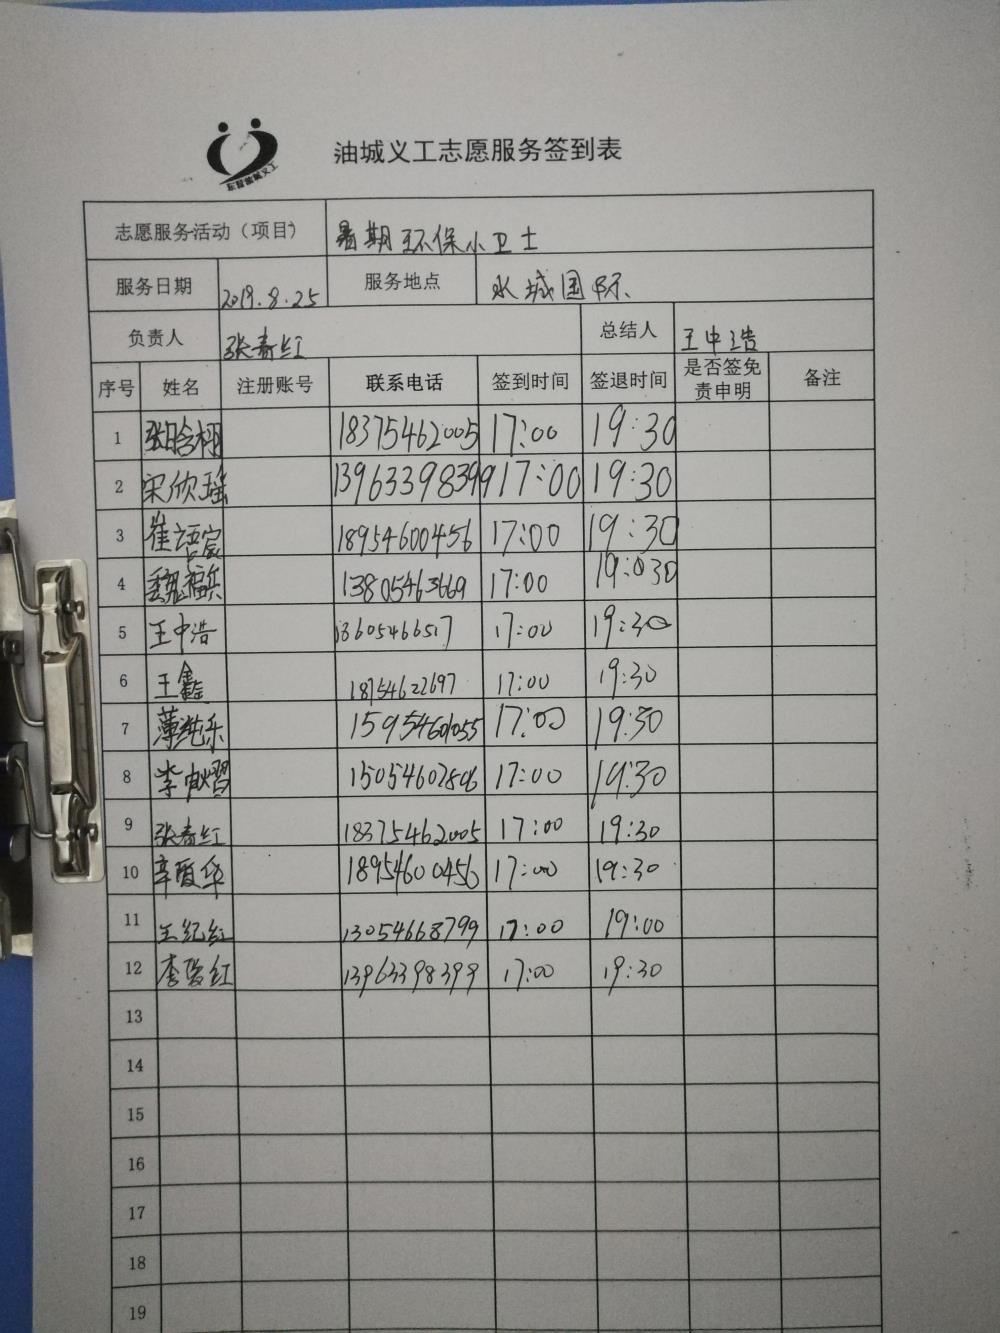 油城义工志愿服务签到表
志愿服务活动（项目） 暑期环保小卫士
服务日期 2019.8.25 服务地点 水城国际
负责人 张春红 总结人 王中浩
序号 姓名 注册账号 联系电话 签到时间 签退时间 是否签免责申明 备注
1 张晗栩 18375462005 17:00 19:30
2 宋欣瑶 13963398399 17:00 19:30
3 崔语宸 18954600456 17:00 19:30
4 魏福兵 13805463669 17:00 19:030
5 王中浩 13605466517 17:00 19:30
6 王鑫 18754622697 17:00 19:30
7 薄纯乐 15954601055 17:00 19:30
8 李 17:00 19:30
9 张春红 18375462005 17:00 19:30
10 辛爱华 18954600456 17:00 19:30
11 王纪红 13054668799 17:00 19:00
12 李爱红 13963398399 17:00 19:30
13
14
15
16
17
18
19